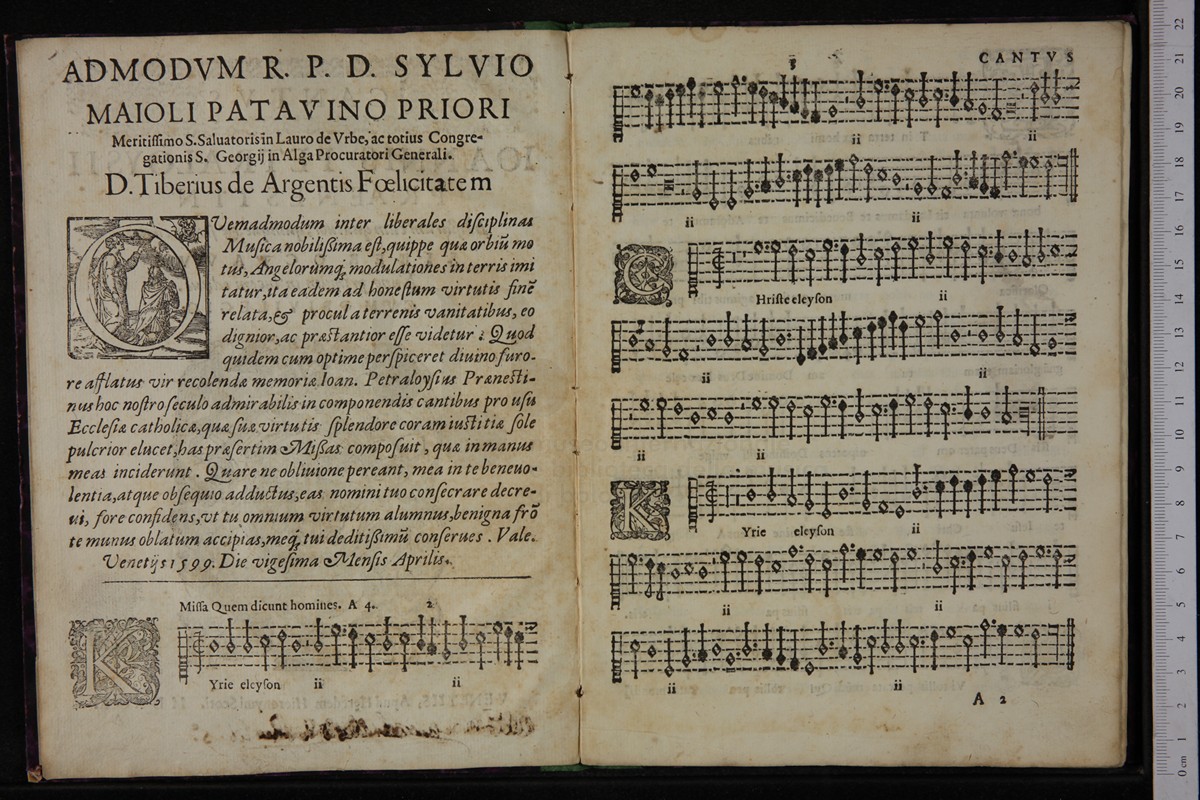 ADMODVM R. P. D. SYLVIO
MAIOLI PATAVINO PRIORI
Meritiſſimo S. Saluatoris in Lauro de Vrbe, ac totius Congre-
gationis S. Georgij in Alga Procuratori Generali.
D. Tiberius de Argentis Fœlicitatem
QVemadmodum inter liberales diſciplinas
Muſica nobilißima eſt, quippe quæ orbiũ mo
tus, Angelorumq; modulationes in terris imi
tatur, ita eadem ad honeſtum virtutis finẽ
relata, & procul a terrenis vanitatibus, eo
dignior, ac præſtantior eſſe videtur: Quod
quidem cum optime perſpiceret diuino furo-
re afflatus vir recolendæ memoriæ Ioan. Petraloyſius Præneſti-
nus hoc noſtro ſeculo admirabilis in componendis cantibus pro uſu
Eccleſiæ catholicæ, quæ ſuæ virtutis ſplendore coram iuſtitiæ ſole
pulcrior elucet, has præſertim Mißas compoſuit, quæ in manus
meas inciderunt. Quare ne obliuione pereant, mea in te beneuo-
lentia, atque obſequio adductus, eas nomini tuo conſecrare decre-
ui, fore confidens, vt tu omnium virtutum alumnus, benigna frõ
te munus oblatum accipias, meq; tui deditißimũ conſerues. Vale.
Venetijs 1599. Die vigeſima Menſis Aprilis.
Miſſa Quem dicunt homines. A 4. 2
K
Yrie eleyſon ii ii
CANTVS
ii ii
ii ii
C
Hriſte eleyſon ii
ii ii
ii ii
K
Yrie eleyſon ii
ii ii
ii ii
A 2
22
21
20
19
18
17
16
15
14
13
12
11
10
9
8
7
6
5
4
3
2
1
0 cm